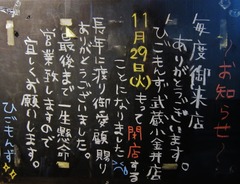 お知らせ
毎度御来店
ありがとうございます。
ひごもんず武蔵小金井店
11月29日(火)をもって閉店する
ことになりました
長年に渡り御愛顧賜り
ありがとうございました。
最後まで一生懸命
営業致しますので
宜しくお願いします。
ひごもんず